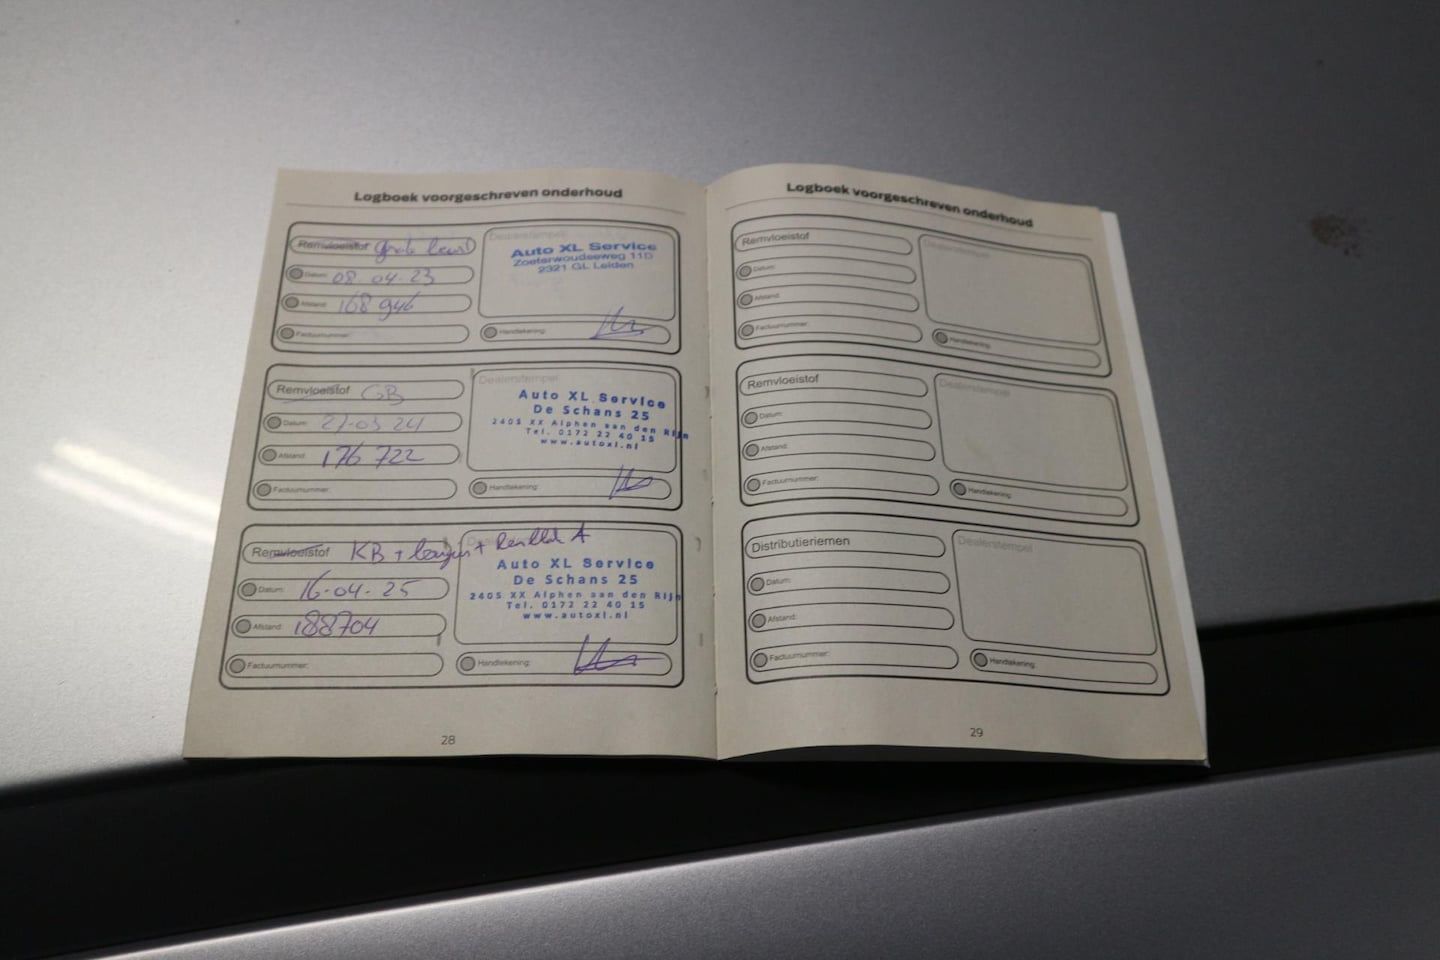 Logboek voorgeschreven onderhoud
Remvloeistof grote beurt
Datum: 08-04-23
Afstand: 168 946
Factuurnummer:
Dealerstempel
Auto XL Service
Zoeterwoudseweg 11D
2321 GL Leiden
Handtekening:
Remvloeistof GB
Datum: 27-03 24
Afstand: 176 722
Factuurnummer:
Dealerstempel
Auto XL Service
De Schans 25
2405 XX Alphen aan den Rijn
Tel. 0172 22 40 15
www.autoxl.nl
Handtekening:
Remvloeistof KB +
Datum: 16-04-25
Afstand: 188704
Factuurnummer:
Auto XL Service
De Schans 25
2405 XX Alphen aan den Rijn
Tel. 0172 22 40 15
www.autoxl.nl
Handtekening:
28
Logboek voorgeschreven onderhoud
Remvloeistof
Datum:
Afstand:
Factuurnummer:
Dealerstempel
Handtekening:
Remvloeistof
Datum:
Afstand:
Factuurnummer:
Dealerstempel
Handtekening:
Distributieriemen
Datum:
Afstand:
Factuurnummer:
Dealerstempel
Handtekening:
29